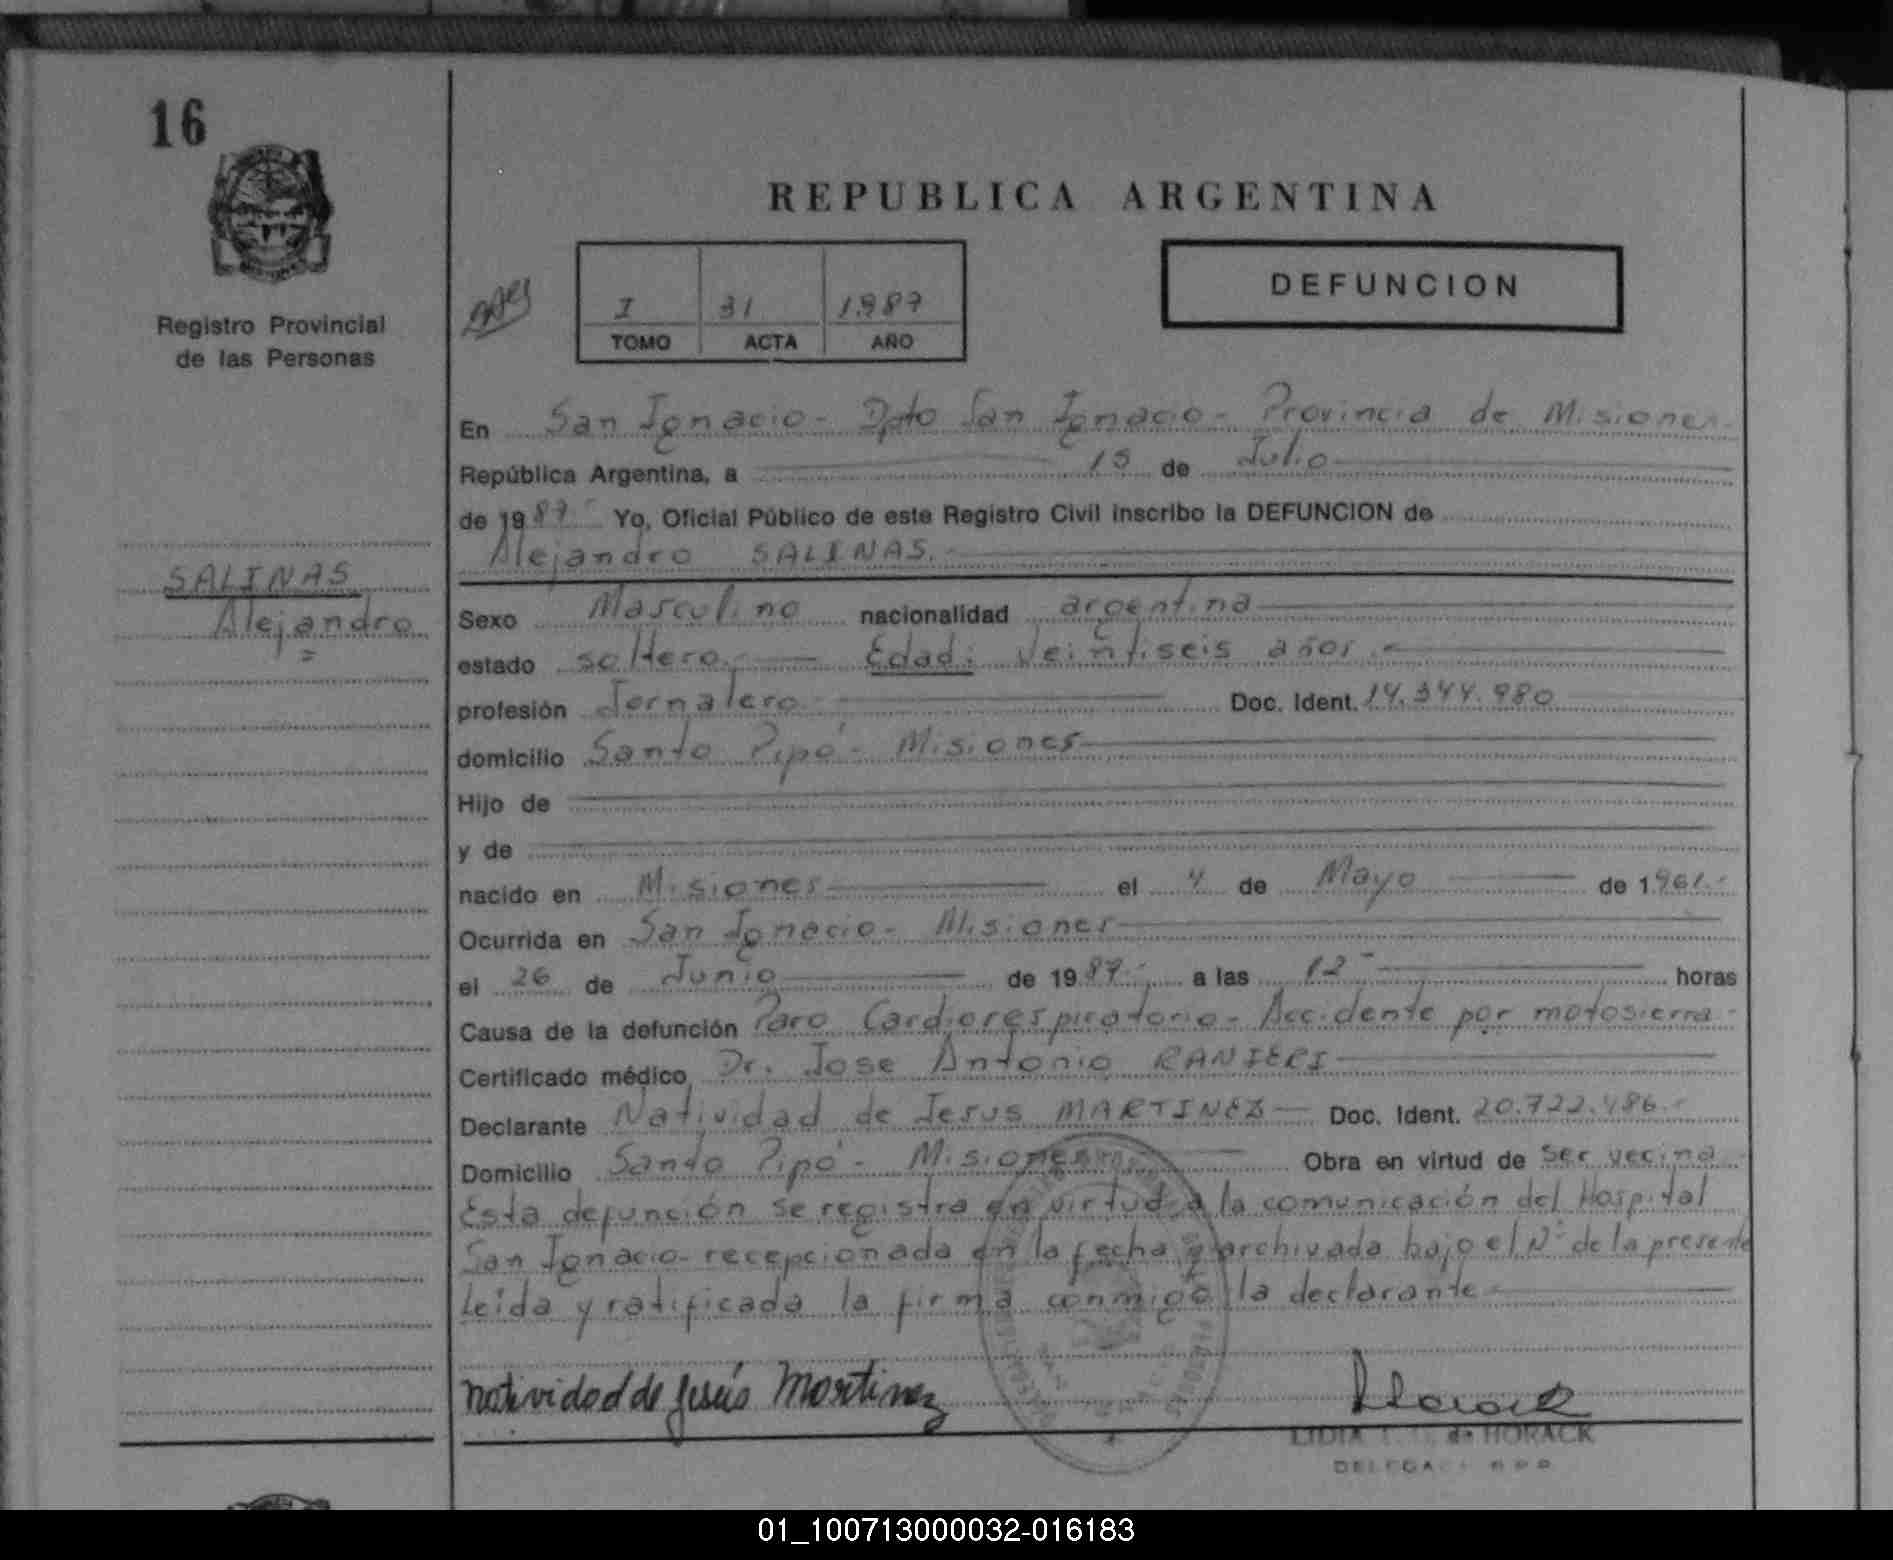 16
REPUBLICA ARGENTINA
DEFUNCION
I 31 1987
TOMO ACTA AÑO
Registro Provincial
de las Personas
En San Ignacio - Dpto San Ignacio - Provincia de Misiones -
República Argentina, a 15 de Julio
de 1987 Yo, Oficial Público de este Registro Civil inscribo la DEFUNCION de
Alejandro SALINAS.
SALINAS
Alejandro
Sexo Masculino nacionalidad argentina
estado soltero. - Edad: Veintiseis años. -
profesión Jornalero Doc. Ident. 14.344.980
domicilio Santo Pipó - Misiones
Hijo de
y de
nacido en Misiones el 4 de Mayo de 1961.-
Ocurrida en San Ignacio - Misiones
el 26 de Junio de 1987.- a las 12- horas
Causa de la defunción Paro Cardiorespiratorio - Accidente por motosierra -
Certificado médico Dr. Jose Antonio RANIERI
Declarante Natividad de Jesus MARTINEZ - Doc. Ident. 20.722.486.-
Domicilio Santo Pipó - Misiones Obra en virtud de ser vecina
Esta defunción se registra en virtud a la comunicación del Hospital
San Ignacio - recepcionada en la fecha y archivada bajo el Nº de la presente
Leída y ratificada la firma conmigo la declarante
natividad de Jesús Martinez
Horack
LIDIA de HORACK
01_100713000032-016183